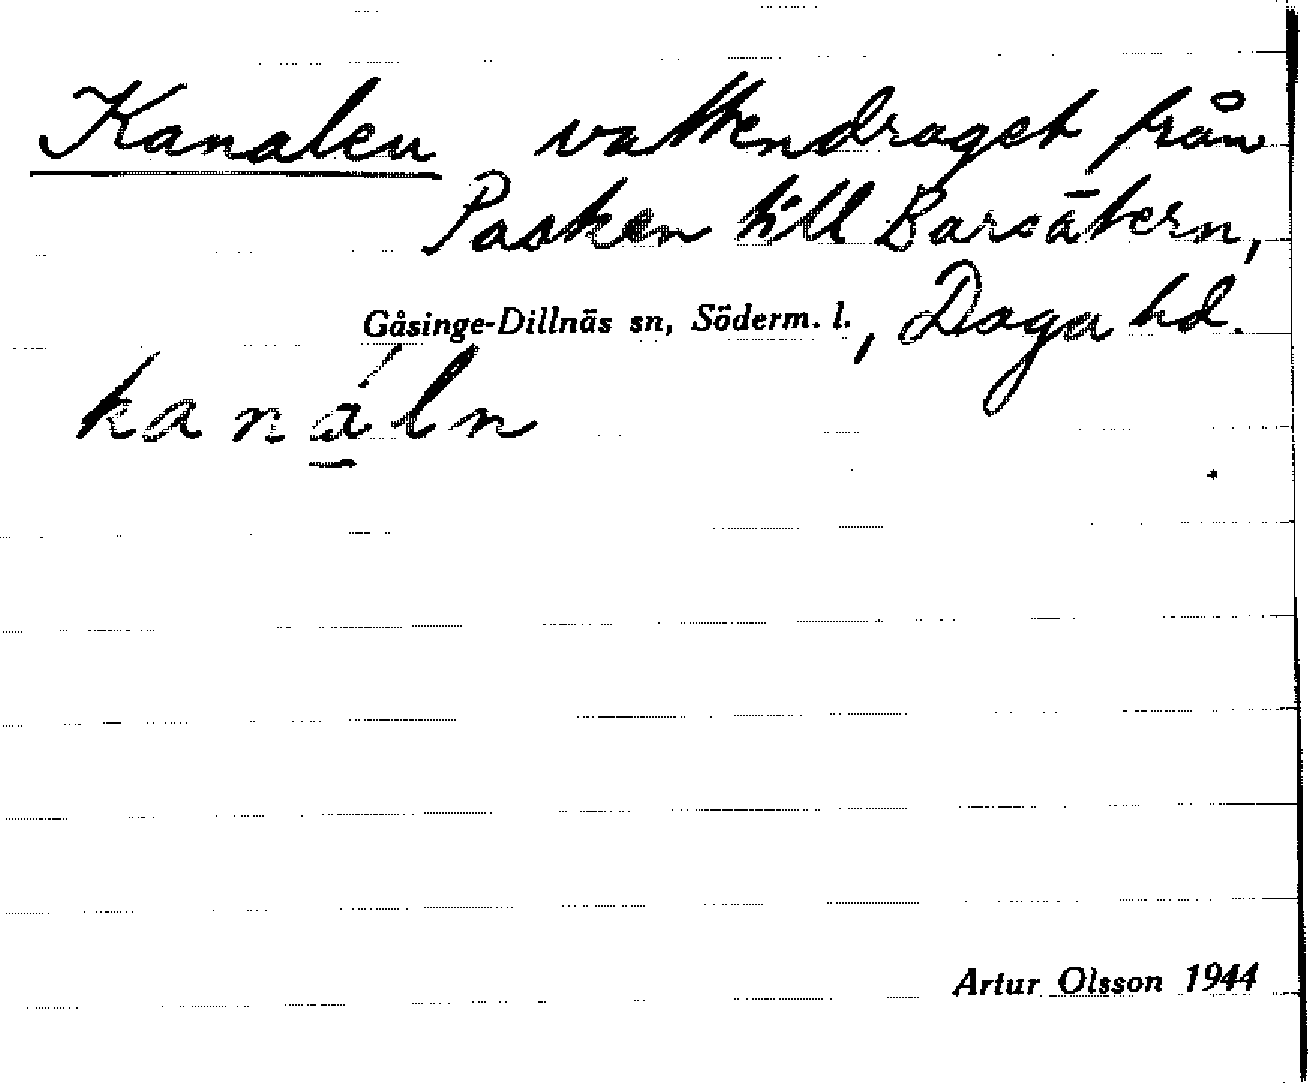 Kanalen vattendraget från
Pasken till Barsätern,
Gåsinge-Dillnäs sn, Söderm. l., Daga hd.
kanáln
Artur Olsson 1944